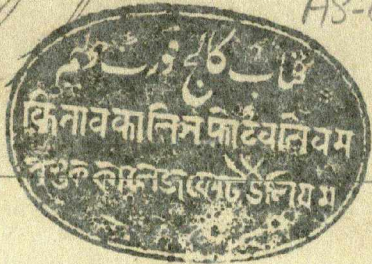 کتاب کالج فورٹ ولیم
किताब कालिज फोर्ट वलियम
পুস্তক কালেজ ফোর্ট উলিয়ম